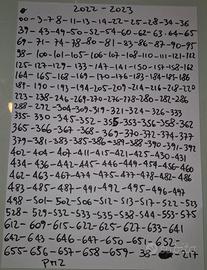 2022 - 2023
00 - 3 - 7 - 8 - 11 - 13 - 14 - 22 - 25 - 28 - 34 - 36
39 - 43 - 49 - 50 - 52 - 54 - 60 - 62 - 63 - 64 - 65
69 - 71 - 74 - 78 - 80 - 81 - 83 - 86 - 87 - 90 - 95
98 - 100 - 101 - 105 - 106 - 107 - 108 - 110 - 111 - 112
125 - 127 - 129 - 133 - 147 - 141 - 150 - 157 - 158 - 162
164 - 165 - 168 - 169 - 170 - 176 - 183 - 184 - 185 - 186
189 - 190 - 193 - 194 - 205 - 209 - 214 - 216 - 218 - 220
223 - 238 - 264 - 269 - 270 - 276 - 278 - 280 - 282 - 286
288 - 292 - 304 - 309 - 319 - 321 - 324 - 326 - 333
335 - 330 - 345 - 352 - 353 - 356 - 358 - 362
365 - 366 - 367 - 368 - 369 - 370 - 372 - 374 - 377
379 - 381 - 383 - 385 - 386 - 389 - 388 - 390 - 391 - 392
402 - 404 - 407 - 411 - 415 - 421 - 425 - 430 - 431
434 - 436 - 441 - 445 - 446 - 449 - 456 - 460
462 - 463 - 467 - 474 - 475 - 477 - 478 - 482 - 486
483 - 485 - 487 - 491 - 492 - 495 - 496 - 497
498 - 501 - 502 - 506 - 512 - 513 - 517 - 522 - 523
528 - 529 - 532 - 533 - 535 - 538 - 544 - 553 - 575
612 - 609 - 615 - 622 - 625 - 627 - 633 - 641
642 - 643 - 646 - 647 - 650 - 651 - 652
655 - 656 - 657 - 658 - 659 - 38 - 217
PMZ